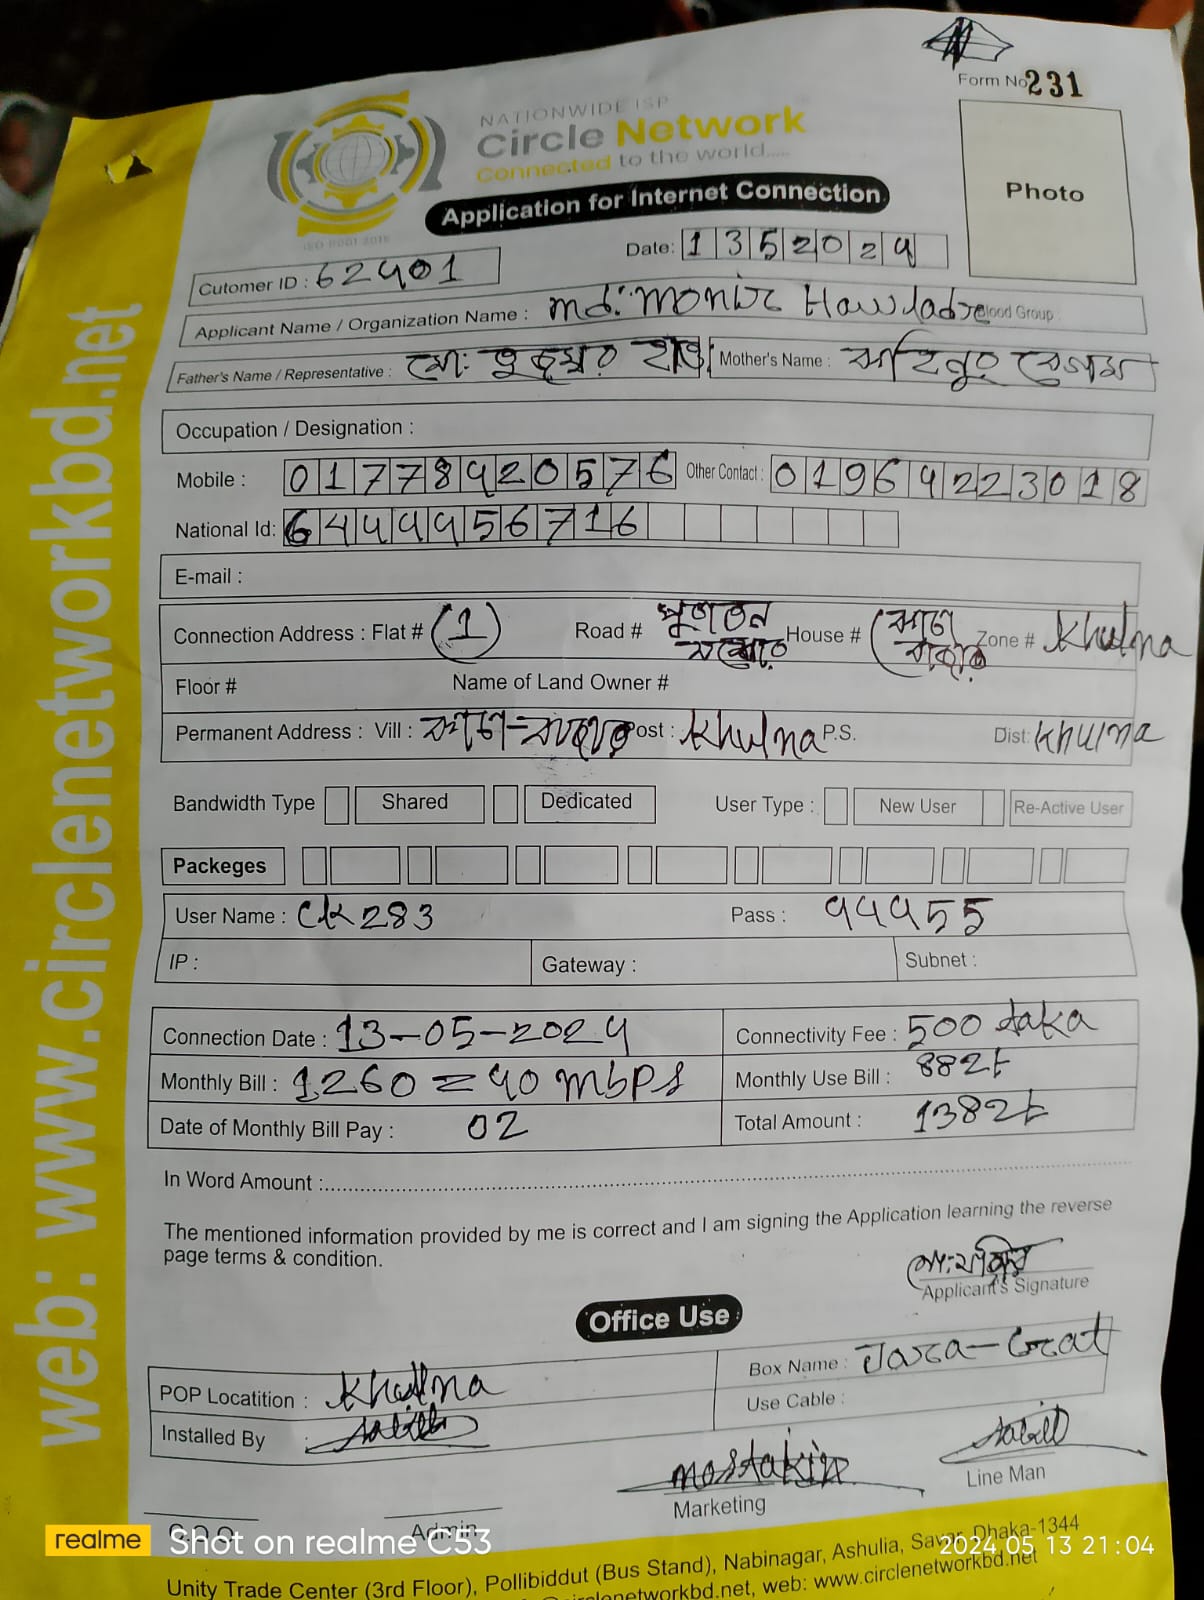 Form No 231
NATIONWIDE ISP
Circle Network
Connected to the world.....
Application for Internet Connection
Photo
ISO 9001:2015
Date: 1 3 5 2 0 2 4
Cutomer ID : 62401
Applicant Name / Organization Name : md: Monir Hawladre Blood Group :
Father's Name / Representative : মো: Mother's Name : বেগম
Occupation / Designation :
Mobile : 01778420576 Other Contact : 01964223018
National Id: 6444456716
E-mail :
Connection Address : Flat # (1) Road # পুরাতন House # Zone # Khulna
Floor # Name of Land Owner #
Permanent Address : Vill : Post : Khulna P.S. Dist: Khulna
Bandwidth Type Shared Dedicated User Type : New User Re-Active User
Packeges
User Name : CK283 Pass : 44455
IP : Gateway : Subnet :
Connection Date : 13-05-2024 Connectivity Fee : 500 taka
Monthly Bill : 1260 = 40 mbps Monthly Use Bill : 882৳
Date of Monthly Bill Pay : 02 Total Amount : 1382৳
In Word Amount :
The mentioned information provided by me is correct and I am signing the Application learning the reverse
page terms & condition.
Applicant's Signature
Office Use
POP Locatition : Khulna Box Name :
Installed By : Use Cable :
mostakin
Marketing
Line Man
Admin
Unity Trade Center (3rd Floor), Pollibiddut (Bus Stand), Nabinagar, Ashulia, Savar, Dhaka-1344
circlenetworkbd.net, web: www.circlenetworkbd.net
web: www.circlenetworkbd.net
realme Shot on realme C53
2024.05.13 21:04